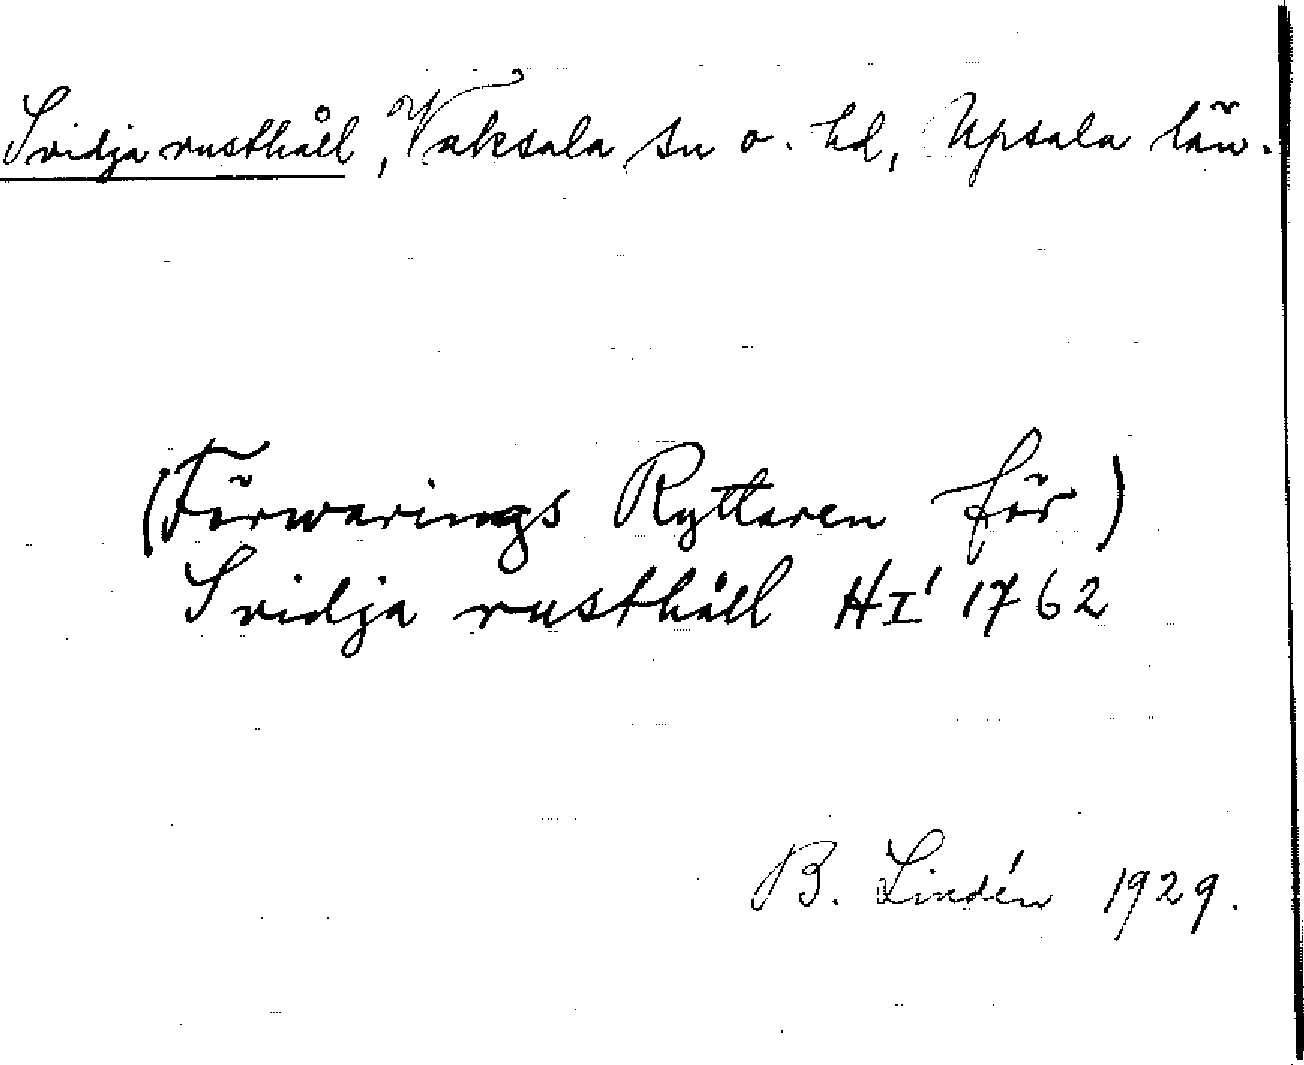 Svidja rusthåll, Vaksala sn o. hd, Upsala län.
(Förwarings Ryttaren för)
Svidja rusthåll HI' 1762
B. Lindén 1929.